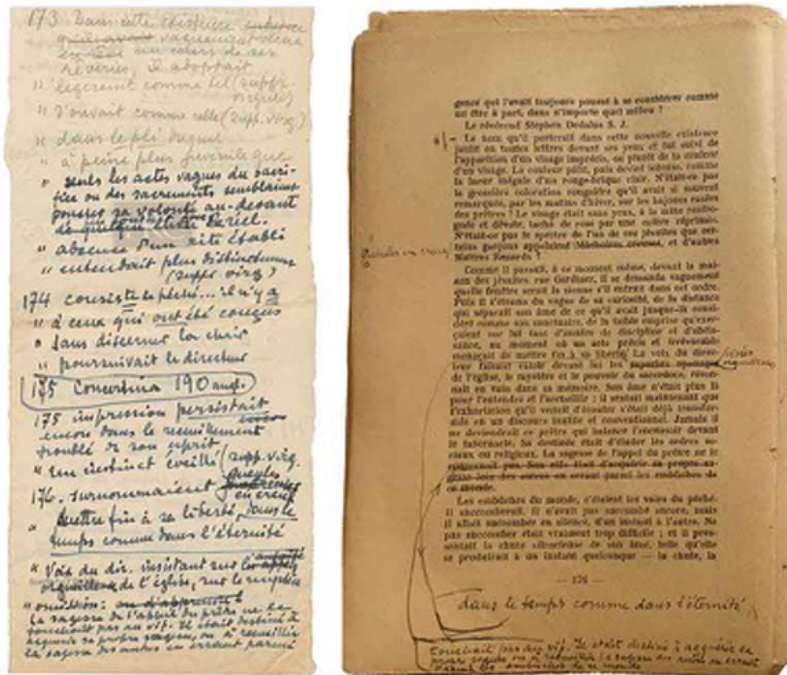 173 Dans cette existence
vaguement
au cours de ses
rêveries, il adoptait
" légèrement comme tel (suppr.
virgule)
" s'ouvrait comme celle (supp. virg)
" dans le pli vague
" à peine plus juvénile que
" seuls les actes vagues du sacri-
fice ou des sacrements semblaient
pousser sa volonté au-devant
réel.
" absence d'un rite établi
" entendait plus distinctement
(suppr virg)
174 consiste le péché... il n'y a
" à ceux qui ont été conçus
" sans discerner la chair
" poursuivait le directeur
175 Concertina 190 angl.
175 impression persistait
encore dans le recueillement
troublé de son esprit
" Un instinct éveillé (supp. virg.
176. surnommaient gueules
en creux
" mettre fin à sa liberté, dans le
temps comme dans l'éternité
" Voix du dir. insistant sur les
orgueilleux de l'église, sur le mystère
" omission:
la sagesse de l'appel du prêtre ne le
touchait pas au vif. Il était destiné à
acquérir sa propre sagesse, ou à recueillir
la sagesse des autres en errant parmi
gence qui l'avait toujours poussé à se considérer comme
un être à part, dans n'importe quel milieu ?
Le révérend Stephen Dedalus S. J.
Le nom qu'il porterait dans cette nouvelle existence
jaillit en toutes lettres devant ses yeux et fut suivi de
l'apparition d'un visage imprécis, ou plutôt de la couleur
d'un visage. La couleur pâlit, puis devint intense, comme
la lueur inégale d'un rouge-brique clair. N'était-ce pas
la grossière coloration rougeâtre qu'il avait si souvent
remarquée, par les matins d'hiver, sur les bajoues rasées
des prêtres ? Le visage était sans yeux, à la mine renfro-
gnée et dévote, taché de rose par une colère réprimée.
N'était-ce pas le spectre de l'un de ces jésuites que cer-
tains garçons appelaient et d'autres
Maîtres Renards ?
Gueules en creux
Comme il passait, à ce moment même, devant la mai-
son des jésuites, rue Gardiner, il se demanda vaguement
quelle fenêtre serait la sienne s'il entrait dans cet ordre.
Puis il s'étonna du vague de sa curiosité, de la distance
qui séparait son âme de ce qu'il avait jusque-là consi-
déré comme son sanctuaire, de la faible emprise qu'exer-
çaient sur lui tant d'années de discipline et d'obéis-
sance, au moment où un acte précis et irrévocable
menaçait de mettre fin à sa liberté. La voix du direc-
teur faisant valoir devant lui les
de l'église, le mystère et le pouvoir du sacerdoce, réson-
nait en vain dans sa mémoire. Son âme n'était plus là
pour l'entendre et l'accueillir : il sentait maintenant que
l'exhortation qu'il venait d'écouter s'était déjà transfor-
mée en un discours inutile et conventionnel. Jamais il
ne deviendrait ce prêtre qui balance l'encensoir devant
le tabernacle. Sa destinée était d'éluder les ordres so-
ciaux ou religieux. La sagesse de l'appel du prêtre ne le
ce monde.
Les embûches du monde, c'étaient les voies du péché.
Il succomberait. Il n'avait pas succombé encore, mais
il allait succomber en silence, d'un instant à l'autre. Ne
pas succomber était vraiment trop difficile ; et il pres-
sentait la chute silencieuse de son âme, telle qu'elle
se produirait à un instant quelconque — la chute, la
— 176 —
dans le temps comme dans l'éternité
touchait pas au vif. Il était destiné à acquérir sa
propre sagesse ou à recueillir la sagesse des autres en errant
parmi les embûches de ce monde